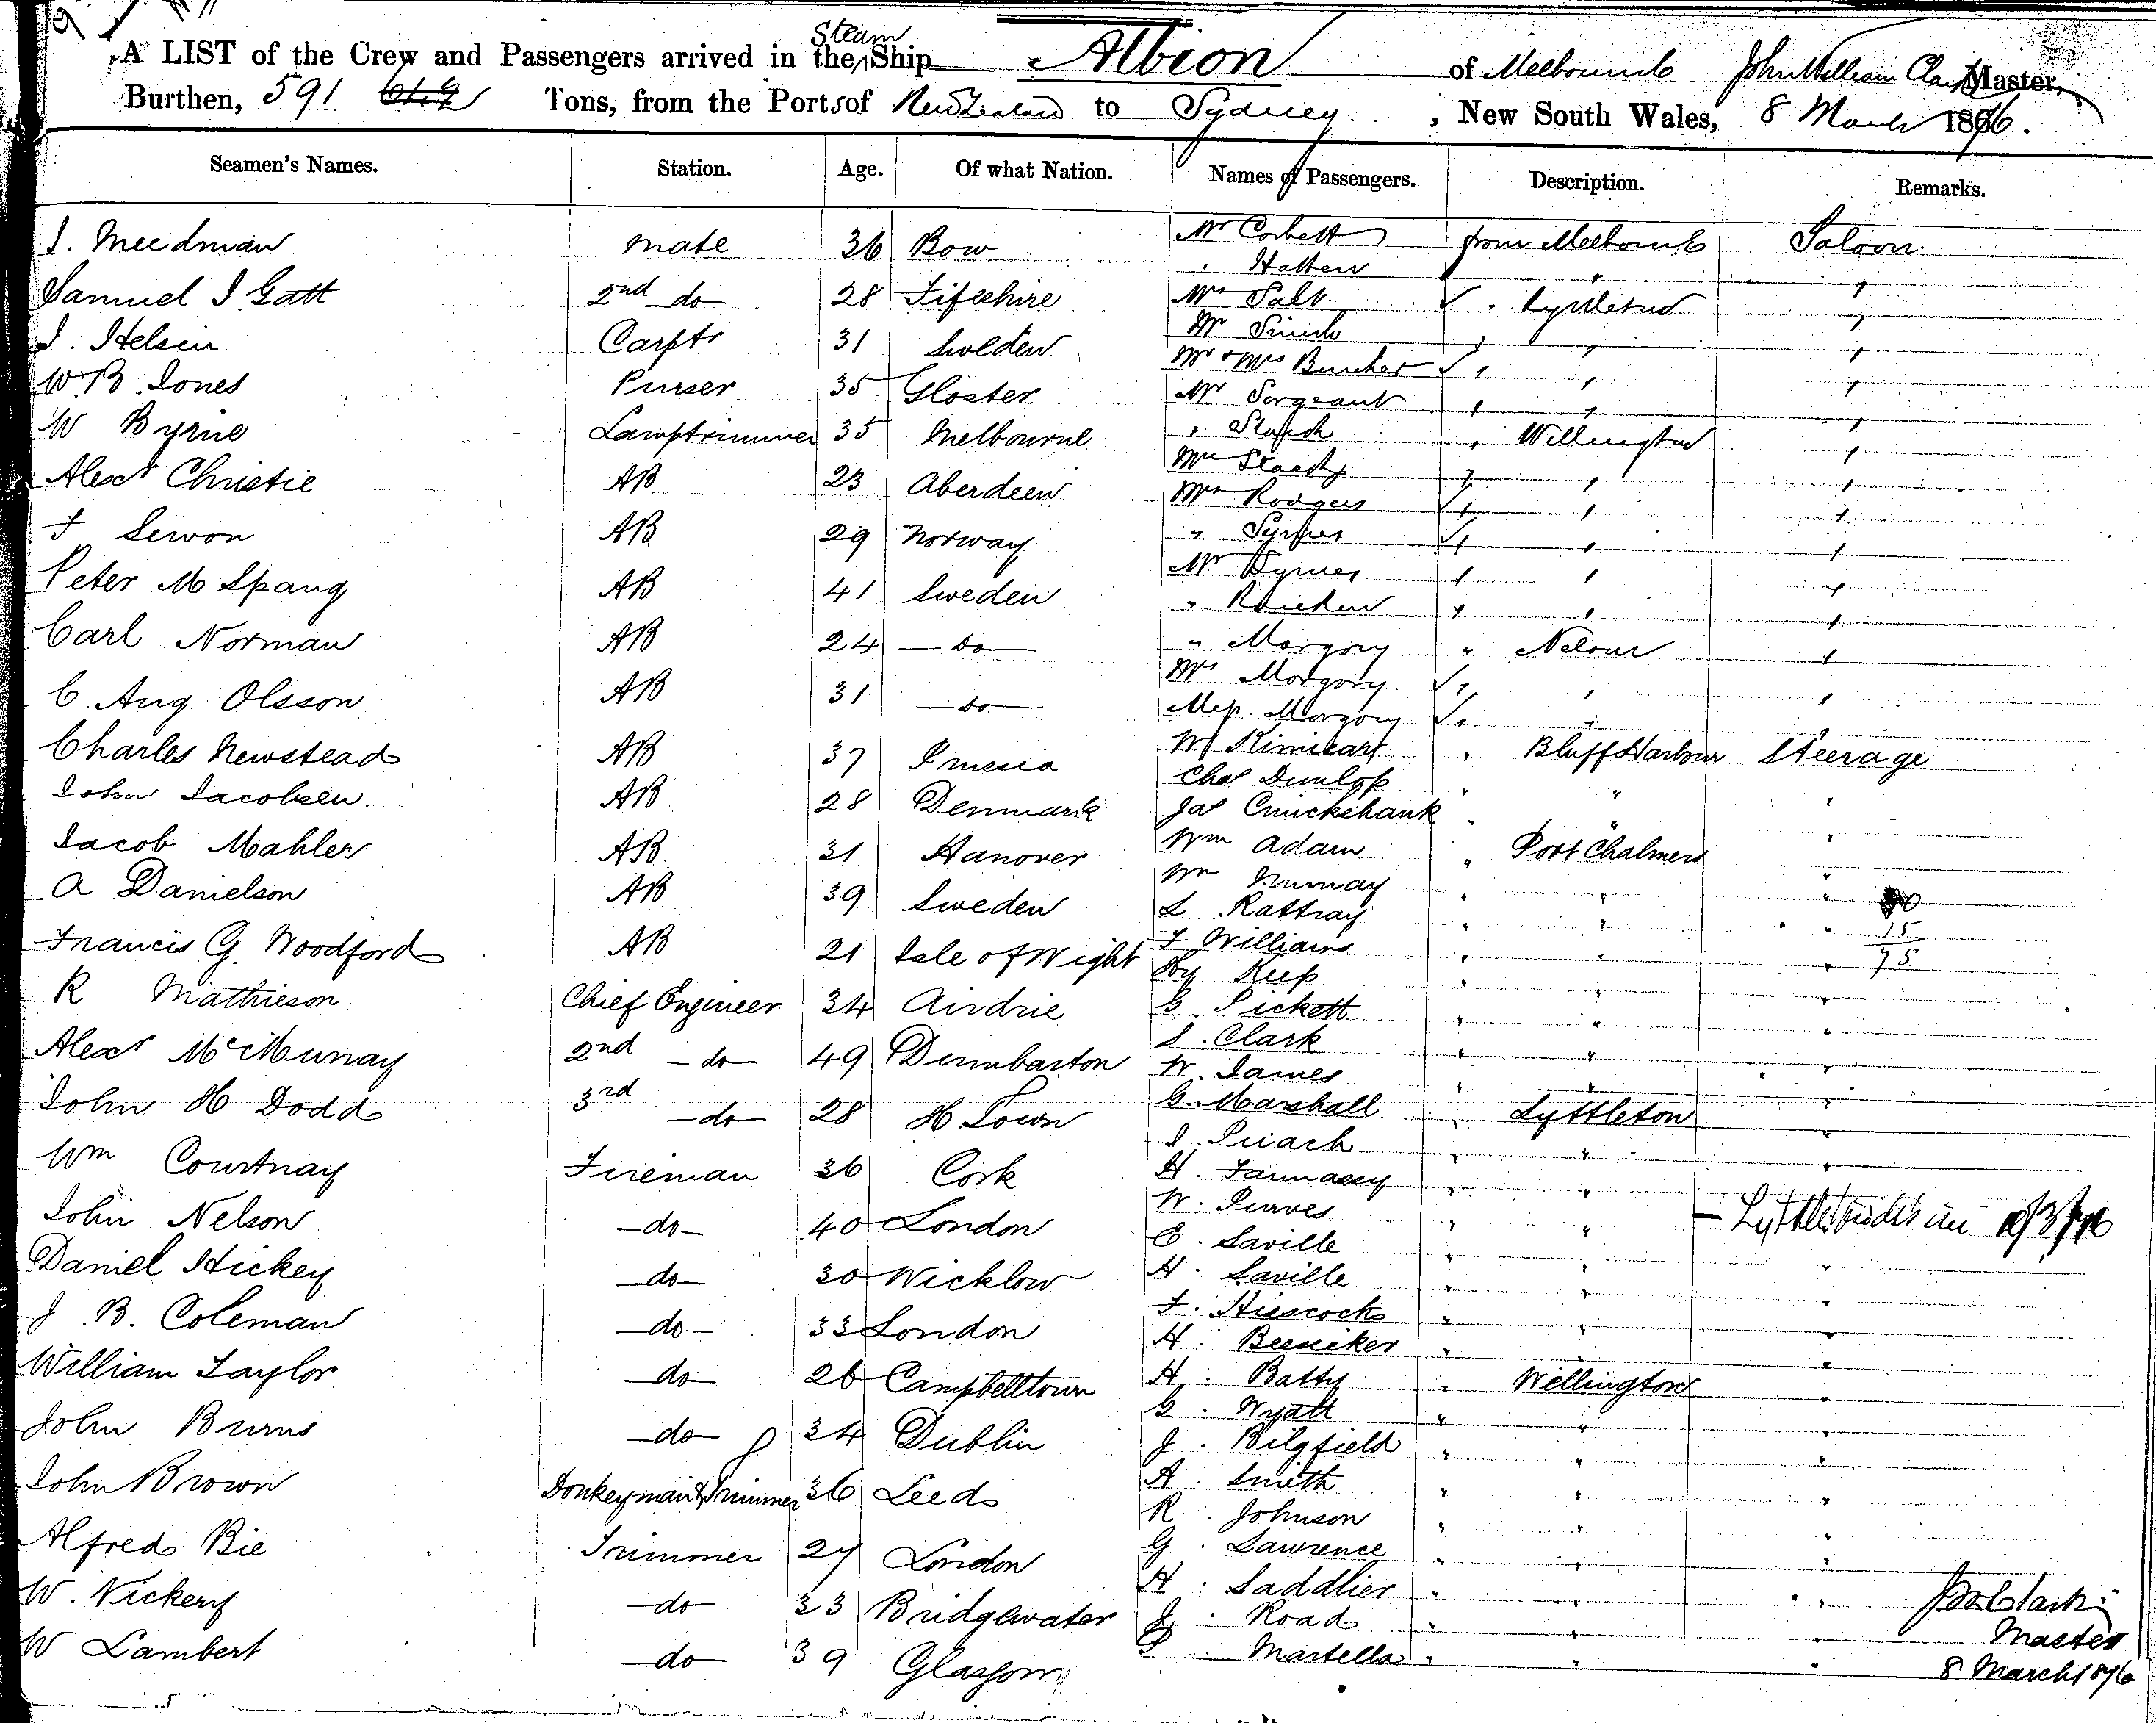 Steam
A LIST of the Crew and Passengers arrived in the Ship Albion of Melbourne John William Clark Master,
Burthen, 591 Tons, from the Ports of New Zealand to Sydney, New South Wales, 8 March 1876.
Seamen's Names. Station. Age. Of what Nation. Names of Passengers. Description. Remarks.
J. Meedman mate 36 Bow Mr Corbett from Melbourne Saloon
" Hatten "
Samuel J Gatt 2nd do 28 Fifeshire Mrs Salt " Lyttleton "
J. Helsen Carptr 31 Sweden Mr " " "
W. B. Jones Purser 35 Gloster Mr & Mrs " " "
Mr Sergeant " " "
W Byrne Lamptrimmer 35 Melbourne " " Wellington "
Alexr Christie AB 23 Aberdeen " " "
Mrs Rodgers " " "
F Sewon AB 29 Norway " " " "
Peter M Spang AB 41 Sweden Mr " " "
" " " "
Carl Norman AB 24 - do - " Morgory " Nelson "
C. Aug Olsson AB 31 - do - Mrs Morgory " " "
Morgory " "
Charles Newstead AB 37 " Bluff Harbour Steerage
Chas Dunlop " " "
John Jacobsen AB 28 Denmark Jas Cruickshank " " "
Jacob Mahler AB 31 Hanover Wm Adam " Port Chalmers "
Wm Murray " " "
A Danielson AB 39 Sweden L Rattray " " " 15
Francis G. Woodford AB 21 Isle of Wight F Williams " " " 75
Hy Keep " " "
R Mathieson Chief Engineer 34 Airdrie G Pickett " " "
S. Clark " " "
Alexr McMurray 2nd - do 49 Dumbarton W. James " " "
John H Dodd 3rd - do - 28 H. Town G. Marshall " Lyttleton "
J. " " "
Wm Courtnay Fireman 36 Cork H. " " "
W. Purves " "
John Nelson - do - 40 London E. Saville " " "
Daniel Hickey - do - 30 Wicklow H. Saville " " "
F. Hiscocks " " "
J. B. Coleman - do - 33 London H. " " "
William Taylor - do - 26 Campbelltown H. Batty " Wellington "
G. Wyatt " " "
John Burns - do - 34 Dublin J. Bilgfield " " "
John Brown Donkeyman & Trimmer 36 Leeds A. Smith " " "
R. Johnson " " "
Alfred Bie Trimmer 27 London G. Lawrence " " "
W. Vickery - do - 33 Bridgewater H. Saddlier " " " Jn W Clark
J. Road " " " Master
W Lambert - do - 39 Glasgow P. Martella " " " 8 March 1876